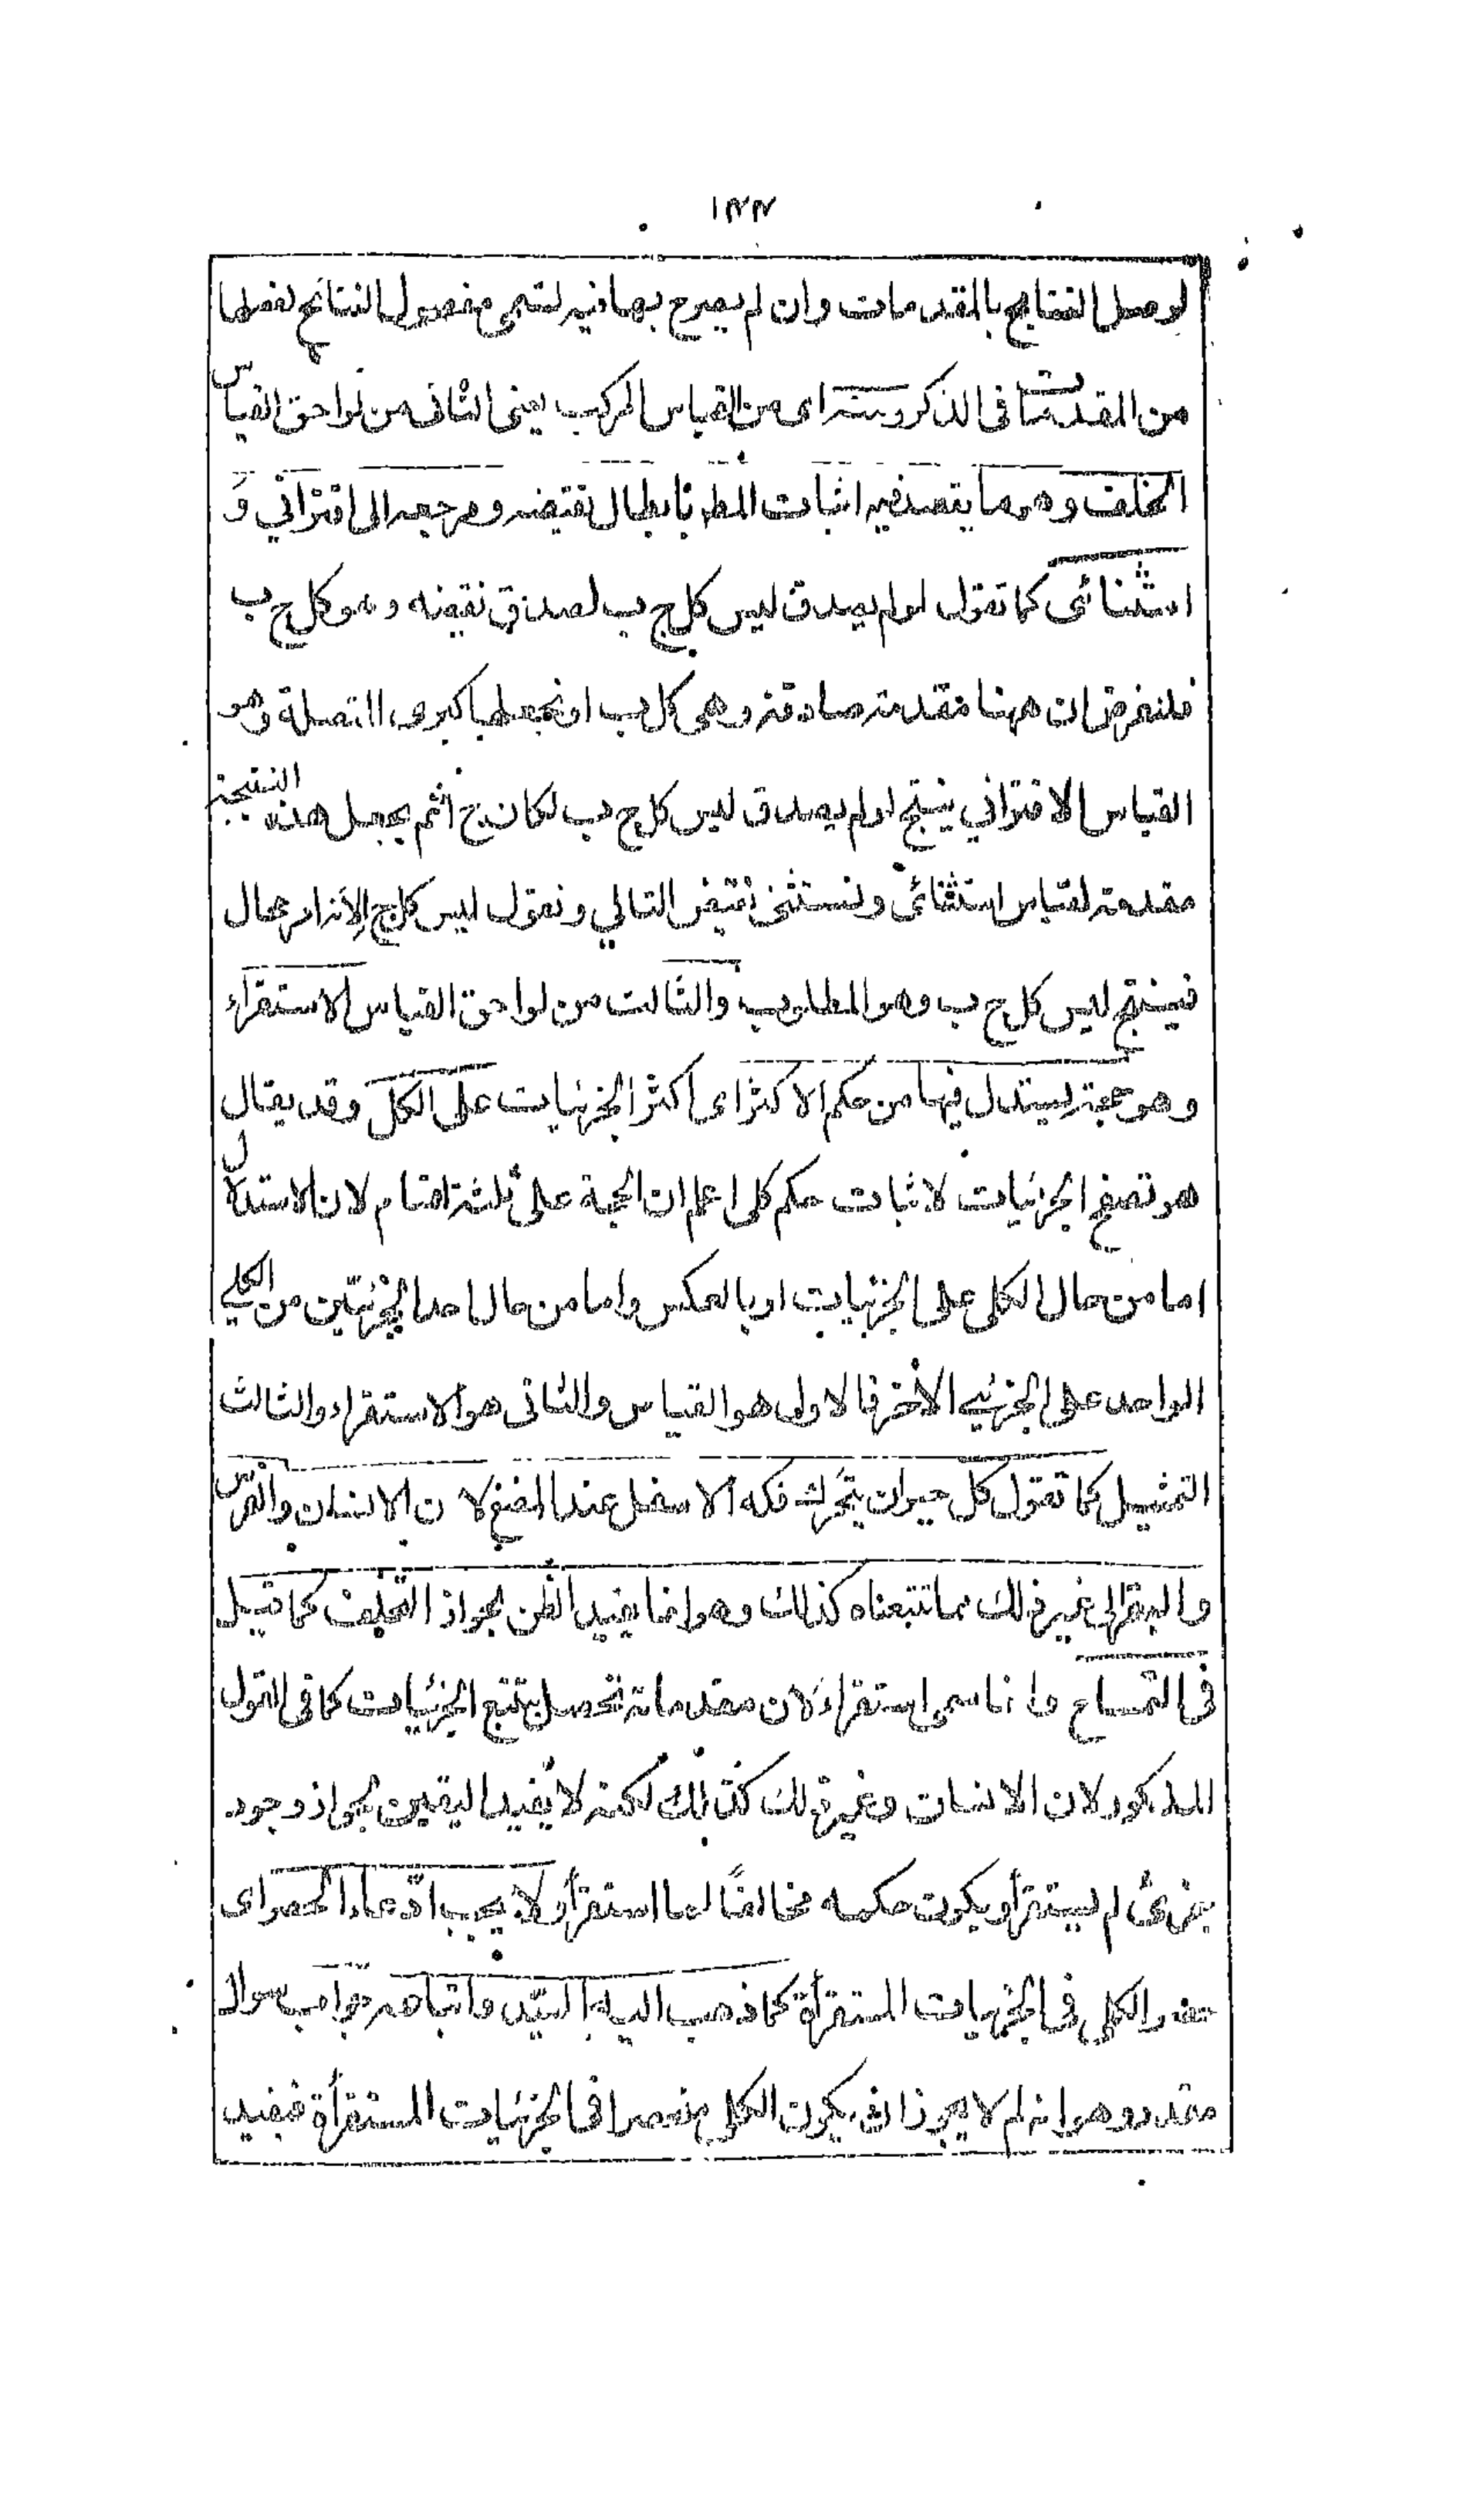 ١٢٢
لوصل النتايج بالمقدمات وان لم يصرح بها فيه لتسمى مفصول النتائج لفصلها
من المقدمات فى الذكر ومنه اى من القياس المركب يعنى الثانى من لواحق القياس
الخلف وهو ما يقصد فيه اثبات المط بابطال نقيضه ومرجعه الى اقترانى و
استثنائى كما تقول لو لم يصدق ليس كل ج ب لصدق نقيضه وهو كل ج ب
فلنفرض ان ههنا مقدمة صادقة وهى كل ب ا ونجعلها كبرى المتصلة وهو
القياس الاقتراني ينتج لو لم يصدق ليس كل ج ب لكان ج ا ثم يجعل هذه النتيجة
مقدمة لقياس استثنائى ونستثنى نقيض التالي ونقول ليس كل ج ا لانه امر محال
فينتج ليس كل ج ب وهو المطلوب والثالث من لواحق القياس الاستقراء
وهو حجة يستدل فيها من حكم الاكثر اى اكثر الجزئيات على الكل وقد يقال
هو تصفح الجزئيات لاثبات حكم كلى اعلم ان الحجة على ثلثة اقسام لان الاستدلال
اما من حال الكلى على الجزئيات او بالعكس واما من حال احد الجزئيين من الكلي
الواحد على الجزئي الاخر فالاول هو القياس والثانى هو الاستقراء والثالث
التمثيل كما تقول كل حيوان يتحرك فكه الاسفل عند المضغ لان الانسان والفرس
والبقر الى غير ذلك مما تتبعناه كذلك وهو انما يفيد الظن لجواز التخلف كما قيل
فى التمساح وانما سمى استقراء لان مقدماته تحصل بتتبع الجزئيات كما فى القول
المذكور لان الانسان وغير ذلك كذلك لكنه لا يفيد اليقين لجواز وجود
جزئى لم يستقرأ ويكون حكمه مخالفًا لما استقرأ ولا يجب ادّعاء الحصر اى
حصر الكلى فى الجزئيات المستقرأة كما ذهب اليه السيّد واتباعه جواب سوال
مقدر وهو انه لم لا يجوز ان يكون الكلى منحصرا فى الجزئيات المستقرأة فيفيد